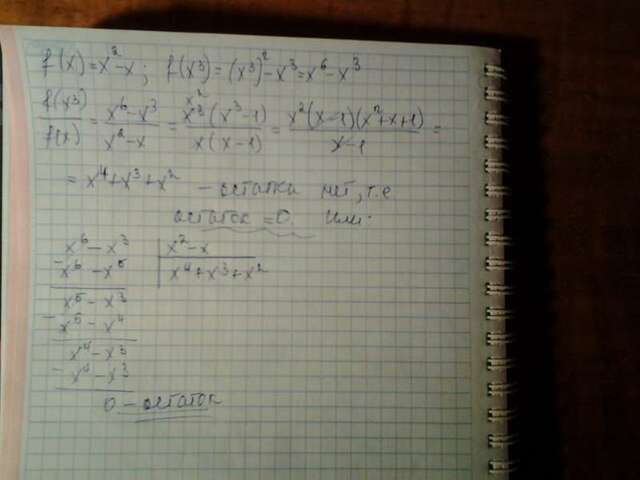 f(x) = x²-x ; f(x³) = (x³)² - x³ = x⁶ - x³
f(x³)/f(x) = (x⁶-x³)/(x²-x) = x³(x³-1)/x(x-1) = x²(x-1)(x²+x+1)/(x-1) =
= x⁴+x³+x² - остатка нет, т.е
остаток = 0. или.
x⁶ - x³ | x² - x
- x⁶ - x⁵ | x⁴ + x³ + x²
x⁵ - x³
- x⁵ - x⁴
x⁴ - x³
- x⁴ - x³
0 - остаток